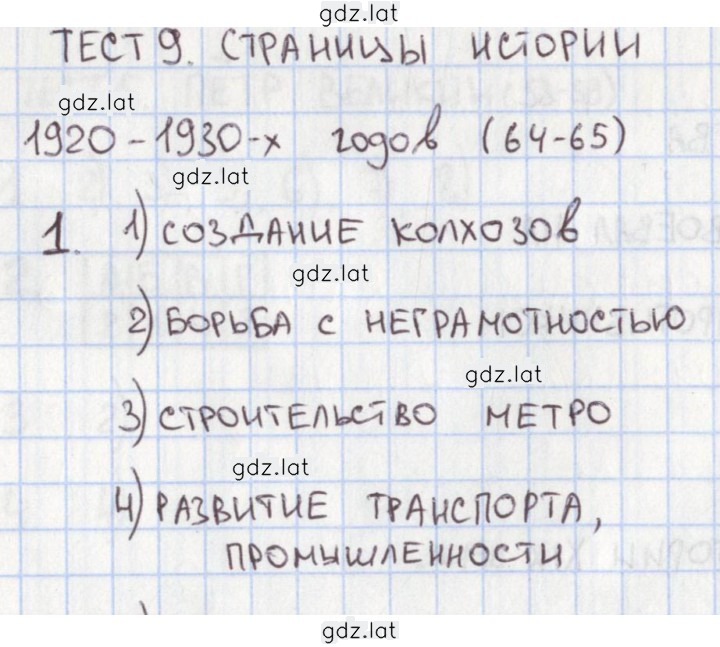 gdz.lat
ТЕСТ 9. СТРАНИЦЫ ИСТОРИИ
gdz.lat
1920-1930-х годов (64-65)
gdz.lat
1. 1) СОЗДАНИЕ КОЛХОЗОВ
gdz.lat
2) БОРЬБА С НЕГРАМОТНОСТЬЮ
gdz.lat
3) СТРОИТЕЛЬСТВО МЕТРО
gdz.lat
4) РАЗВИТИЕ ТРАНСПОРТА,
ПРОМЫШЛЕННОСТИ
gdz.lat